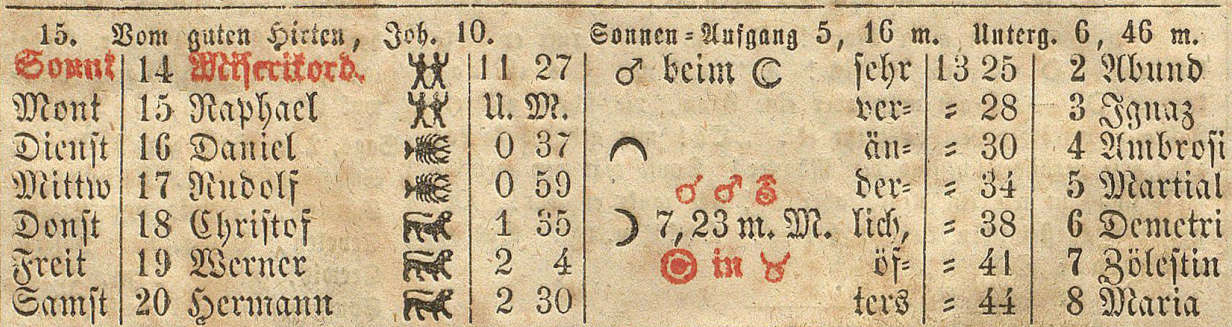 15. Vom guten Hirten, Joh. 10. Sonnen-Aufgang 5, 16 m. Unterg. 6, 46 m.
Sonnt 14 Miserikord. 11 27 ♂ beim ☾ sehr 13 25 2 Abund
Mont 15 Raphael U. M. ver- = 28 3 Ignaz
Dienst 16 Daniel 0 37 än- = 30 4 Ambrosi
Mittw 17 Rudolf 0 59 ☌ ♂ ⛢ der- = 34 5 Martial
Donst 18 Christof 1 35 ☽ 7, 23 m. M. lich, = 38 6 Demetri
Freit 19 Werner 2 4 ☉ in ♉ öf- = 41 7 Zölestin
Samst 20 Hermann 2 30 ters = 44 8 Maria